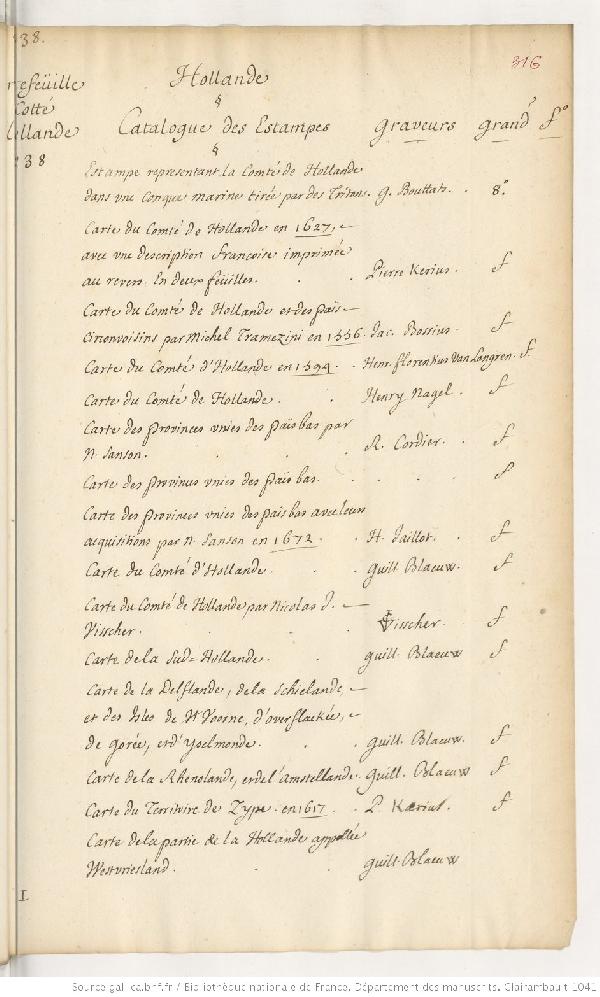 338.
316
rtefeüille
Cotté
ollande
338
Hollande
§
Catalogue des Estampes graveurs grand^r f^o
§
Estampe representant la Comté de Hollande
dans vne Conque marine tirée par des Tritons. G. Bouttats. 8.^o
Carte du Comté de Hollande en 1627,
avec vne description françoise imprimée
au revers. En deux feüilles. Pierre Kerius. f
Carte du Comté de Hollande et des païs
circonvoisins par Michel Tramezini en 1556. Jac. Bossius. f
Carte du Comté d'Hollande en 1594. Henr. florentius Van Langren. f
Carte du Comté de Hollande. Henry Nagel. f
Carte des Provinces vnies des païs bas par
N. Sanson. R. Cordier. f
Carte des provinces vnies des païs bas. f
Carte des Provinces vnies des païs bas avec leurs
acquisitions par N. Sanson en 1672. H. Jaillot. f
Carte du Comté d'Hollande. guill. Blaeuw. f
Carte du Comté de Hollande par Nicolas J.
Visscher. Visscher. f
Carte de la Sud-Hollande. guill. Blaeuw f
Carte de la Delflande, de la Schielande,
et des Isles de Voorne, d'overflackée,
de gorée, et d'Yselmonde. guill. Blaeuw. f
Carte de la Rhenolande, et de l'Amstellande. guill. Blaeuw f
Carte du Territoire de Zype en 1617. P. Kærius. f
Carte de la partie de la Hollande appellée
Westvriesland. guill. Blaeuw
I
Source gallica.bnf.fr / Bibliothèque nationale de France. Département des manuscrits. Clairambault 1041